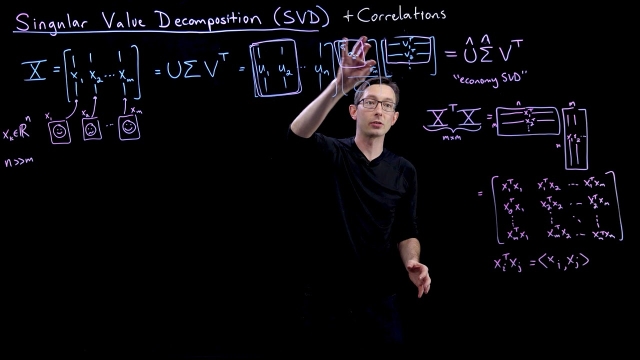 Singular Value Decomposition (SVD) + Correlations
X = [x₁ x₂ ⋯ xₘ] = U Σ Vᵀ = [u₁ u₂ ⋯ uₙ] = Û Σ̂ Vᵀ
"economy SVD"
x₁ x₂ ⋯ xₘ
xₖ ∈ ℝⁿ
n >> m
XᵀX =
m×m
n
m
x₁ᵀ
x₂ᵀ
m
n
x₁ x₂ ⋯
= [ x₁ᵀx₁ x₁ᵀx₂ ⋯ x₁ᵀxₘ
x₂ᵀx₁ x₂ᵀx₂ ⋯ x₂ᵀxₘ
⋮ ⋮ ⋱ ⋮
xₘᵀx₁ xₘᵀx₂ ⋯ xₘᵀxₘ ]
xᵢᵀxⱼ = <xᵢ, xⱼ>